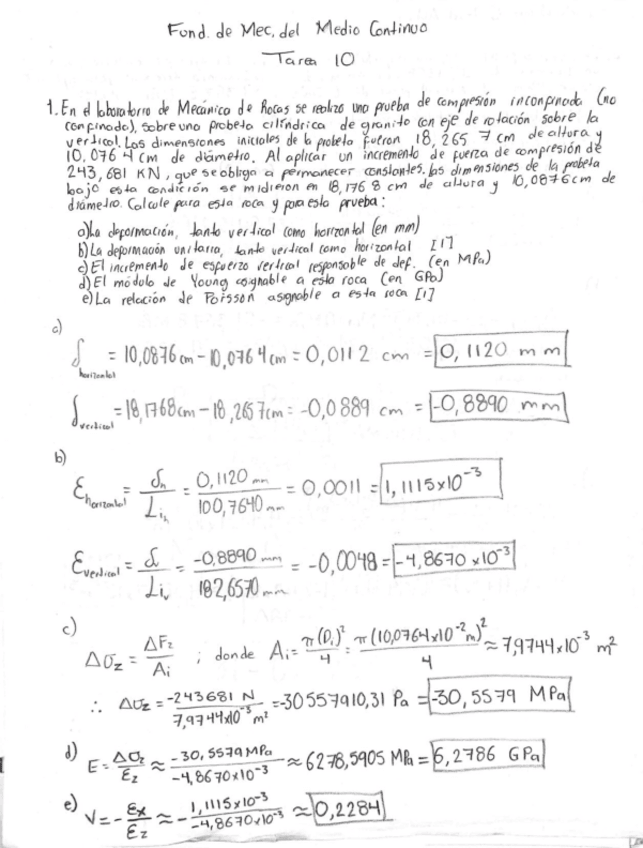 Fund. de Mec. del Medio Continuo
Tarea 10
1. En el laboratorio de Mecánica de Rocas se realizó una prueba de compresión inconfinada (no
confinada), sobre una probeta cilíndrica de granito con eje de rotación sobre la
vertical. Las dimensiones iniciales de la probeta fueron 18,265 7 cm de altura y
10,076 4 cm de diámetro. Al aplicar un incremento de fuerza de compresión de
243,681 KN, que se obliga a permanecer constantes. las dimensiones de la probeta
bajo esta condición se midieron en 18,176 8 cm de altura y 10,0876cm de
diámetro. Calcule para esta roca y para esta prueba:
a) La deformación, tanto vertical como horizontal (en mm)
b) La deformación unitaria, tanto vertical como horizontal [1]
c) El incremento de esfuerzo vertical responsable de def. (en MPa)
d) El módulo de Young asignable a esta roca (en GPa)
e) La relación de Poisson asignable a esta roca [1]
a)
δhorizontal = 10,0876 cm - 10,0764 cm = 0,0112 cm = 0,1120 mm
δvertical = 18,1768cm - 18,2657cm = -0,0889 cm = -0,8890 mm
b)
εhorizontal = δh/Lih = 0,1120 mm/100,7640 mm = 0,0011 = 1,1115x10⁻³
εvertical = δ/Liv = -0,8890 mm/182,6570 mm = -0,0048 = -4,8670 x10⁻³
c)
Δσz = ΔFz/Ai ; donde Ai = π(Di)²/4 = π(10,0764x10⁻²m)²/4 ≈ 7,9744x10⁻³ m²
∴ Δσz = -243681 N/7,9744x10⁻³ m² = -30557910,31 Pa = -30,5579 MPa
d) E = Δσz/εz ≈ -30,5579 MPa/-4,8670x10⁻³ ≈ 6278,5905 MPa = 6,2786 GPa
e) V = - εx/εz ≈ - 1,1115x10⁻³/-4,8670x10⁻³ ≈ 0,2284